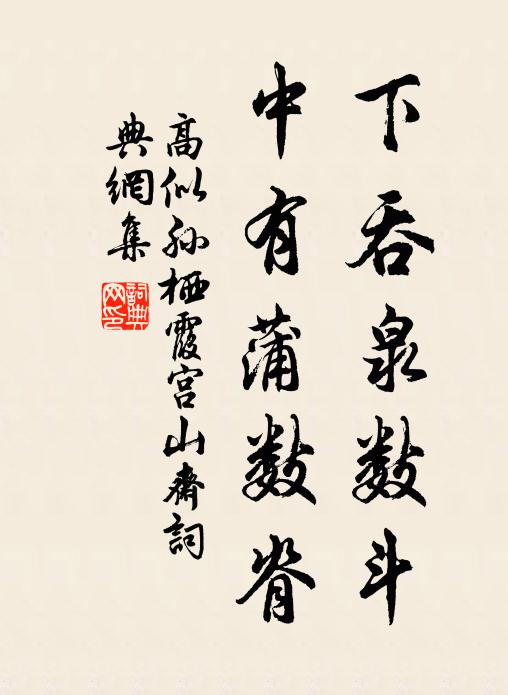 下吞泉数斗
中有蒲数脊
高似孙栖霞宫山斋詞
典網集
詞典網印